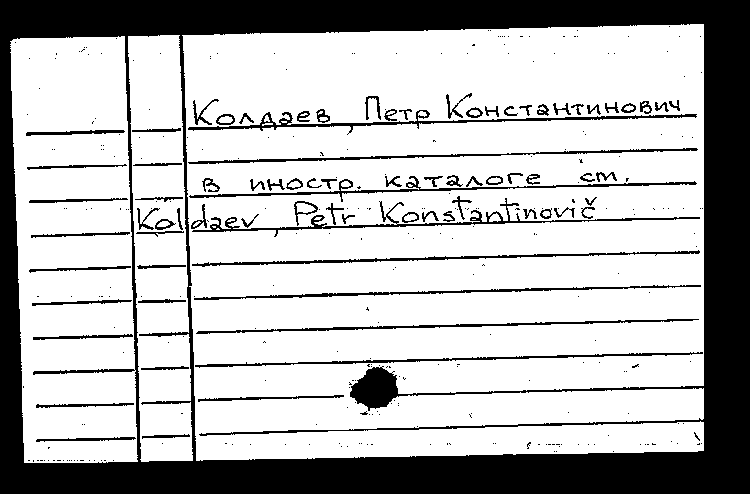 Колдаев, Петр Константинович
в иностр. каталоге см.
Koldaev, Petr Konstantinovič